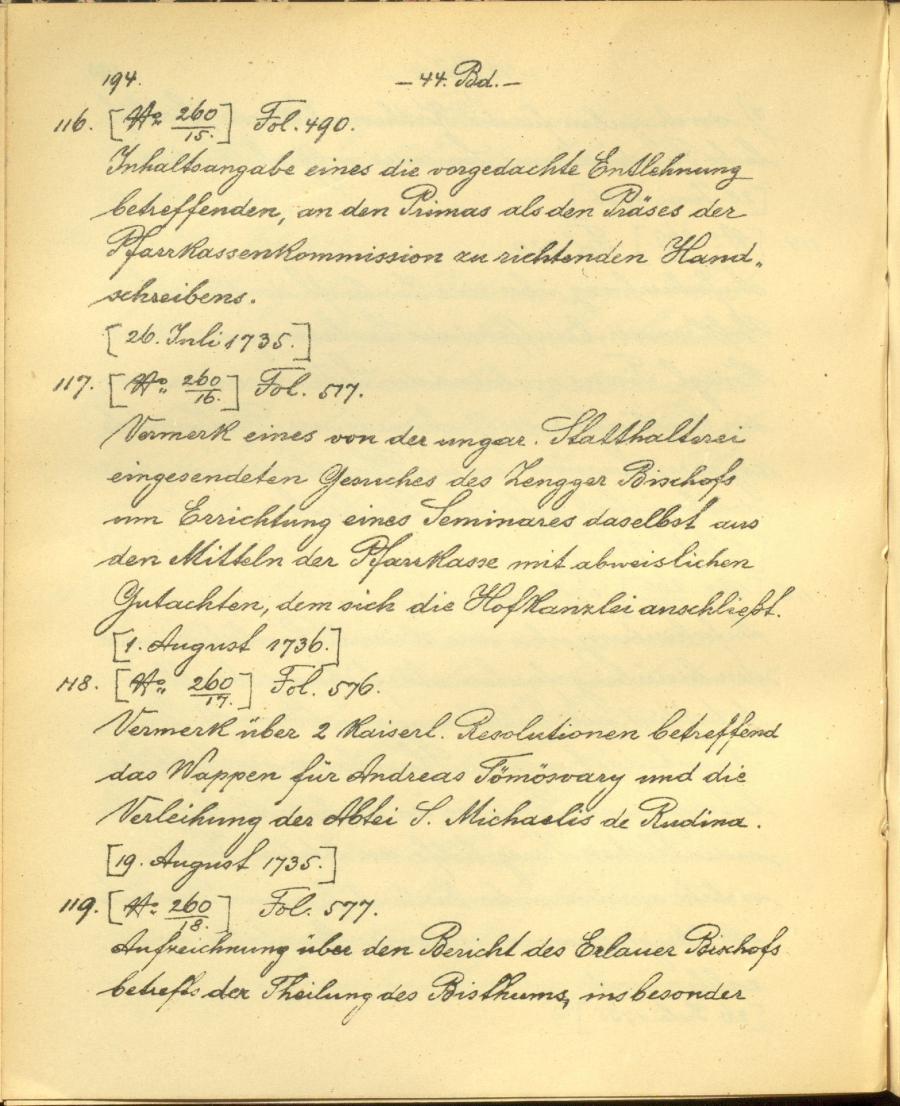 194.
– 44. Bd. –
116. [No 260/15.] Fol. 490.
Inhaltsangabe eines die vorgedachte Entlehnung
betreffenden, an den Primas als den Präses der
Pfarrkassenkommission zu richtenden Hand„
schreibens.
[26. Juli 1735.]
117. [No 260/16.] Fol. 517.
Vermerk eines von der ungar. Statthalterei
eingesendeten Gesuches des Zengger Bischofs
um Errichtung eines Seminares daselbst aus
den Mitteln der Pfarrkasse mit abweislichen
Gutachten, dem sich die Hofkanzlei anschließt.
[1. August 1736.]
118. [No 260/17.] Fol. 576.
Vermerk über 2 Kaiserl. Resolutionen betreffend
das Wappen für Andreas Tömösvary und die
Verleihung der Abtei S. Michaelis de Rudina.
[19. August 1735.]
119. [No 260/18.] Fol. 577.
Aufzeichnung über den Bericht des Erlauer Bischofs
betreffs der Theilung des Bisthums, insbesonder